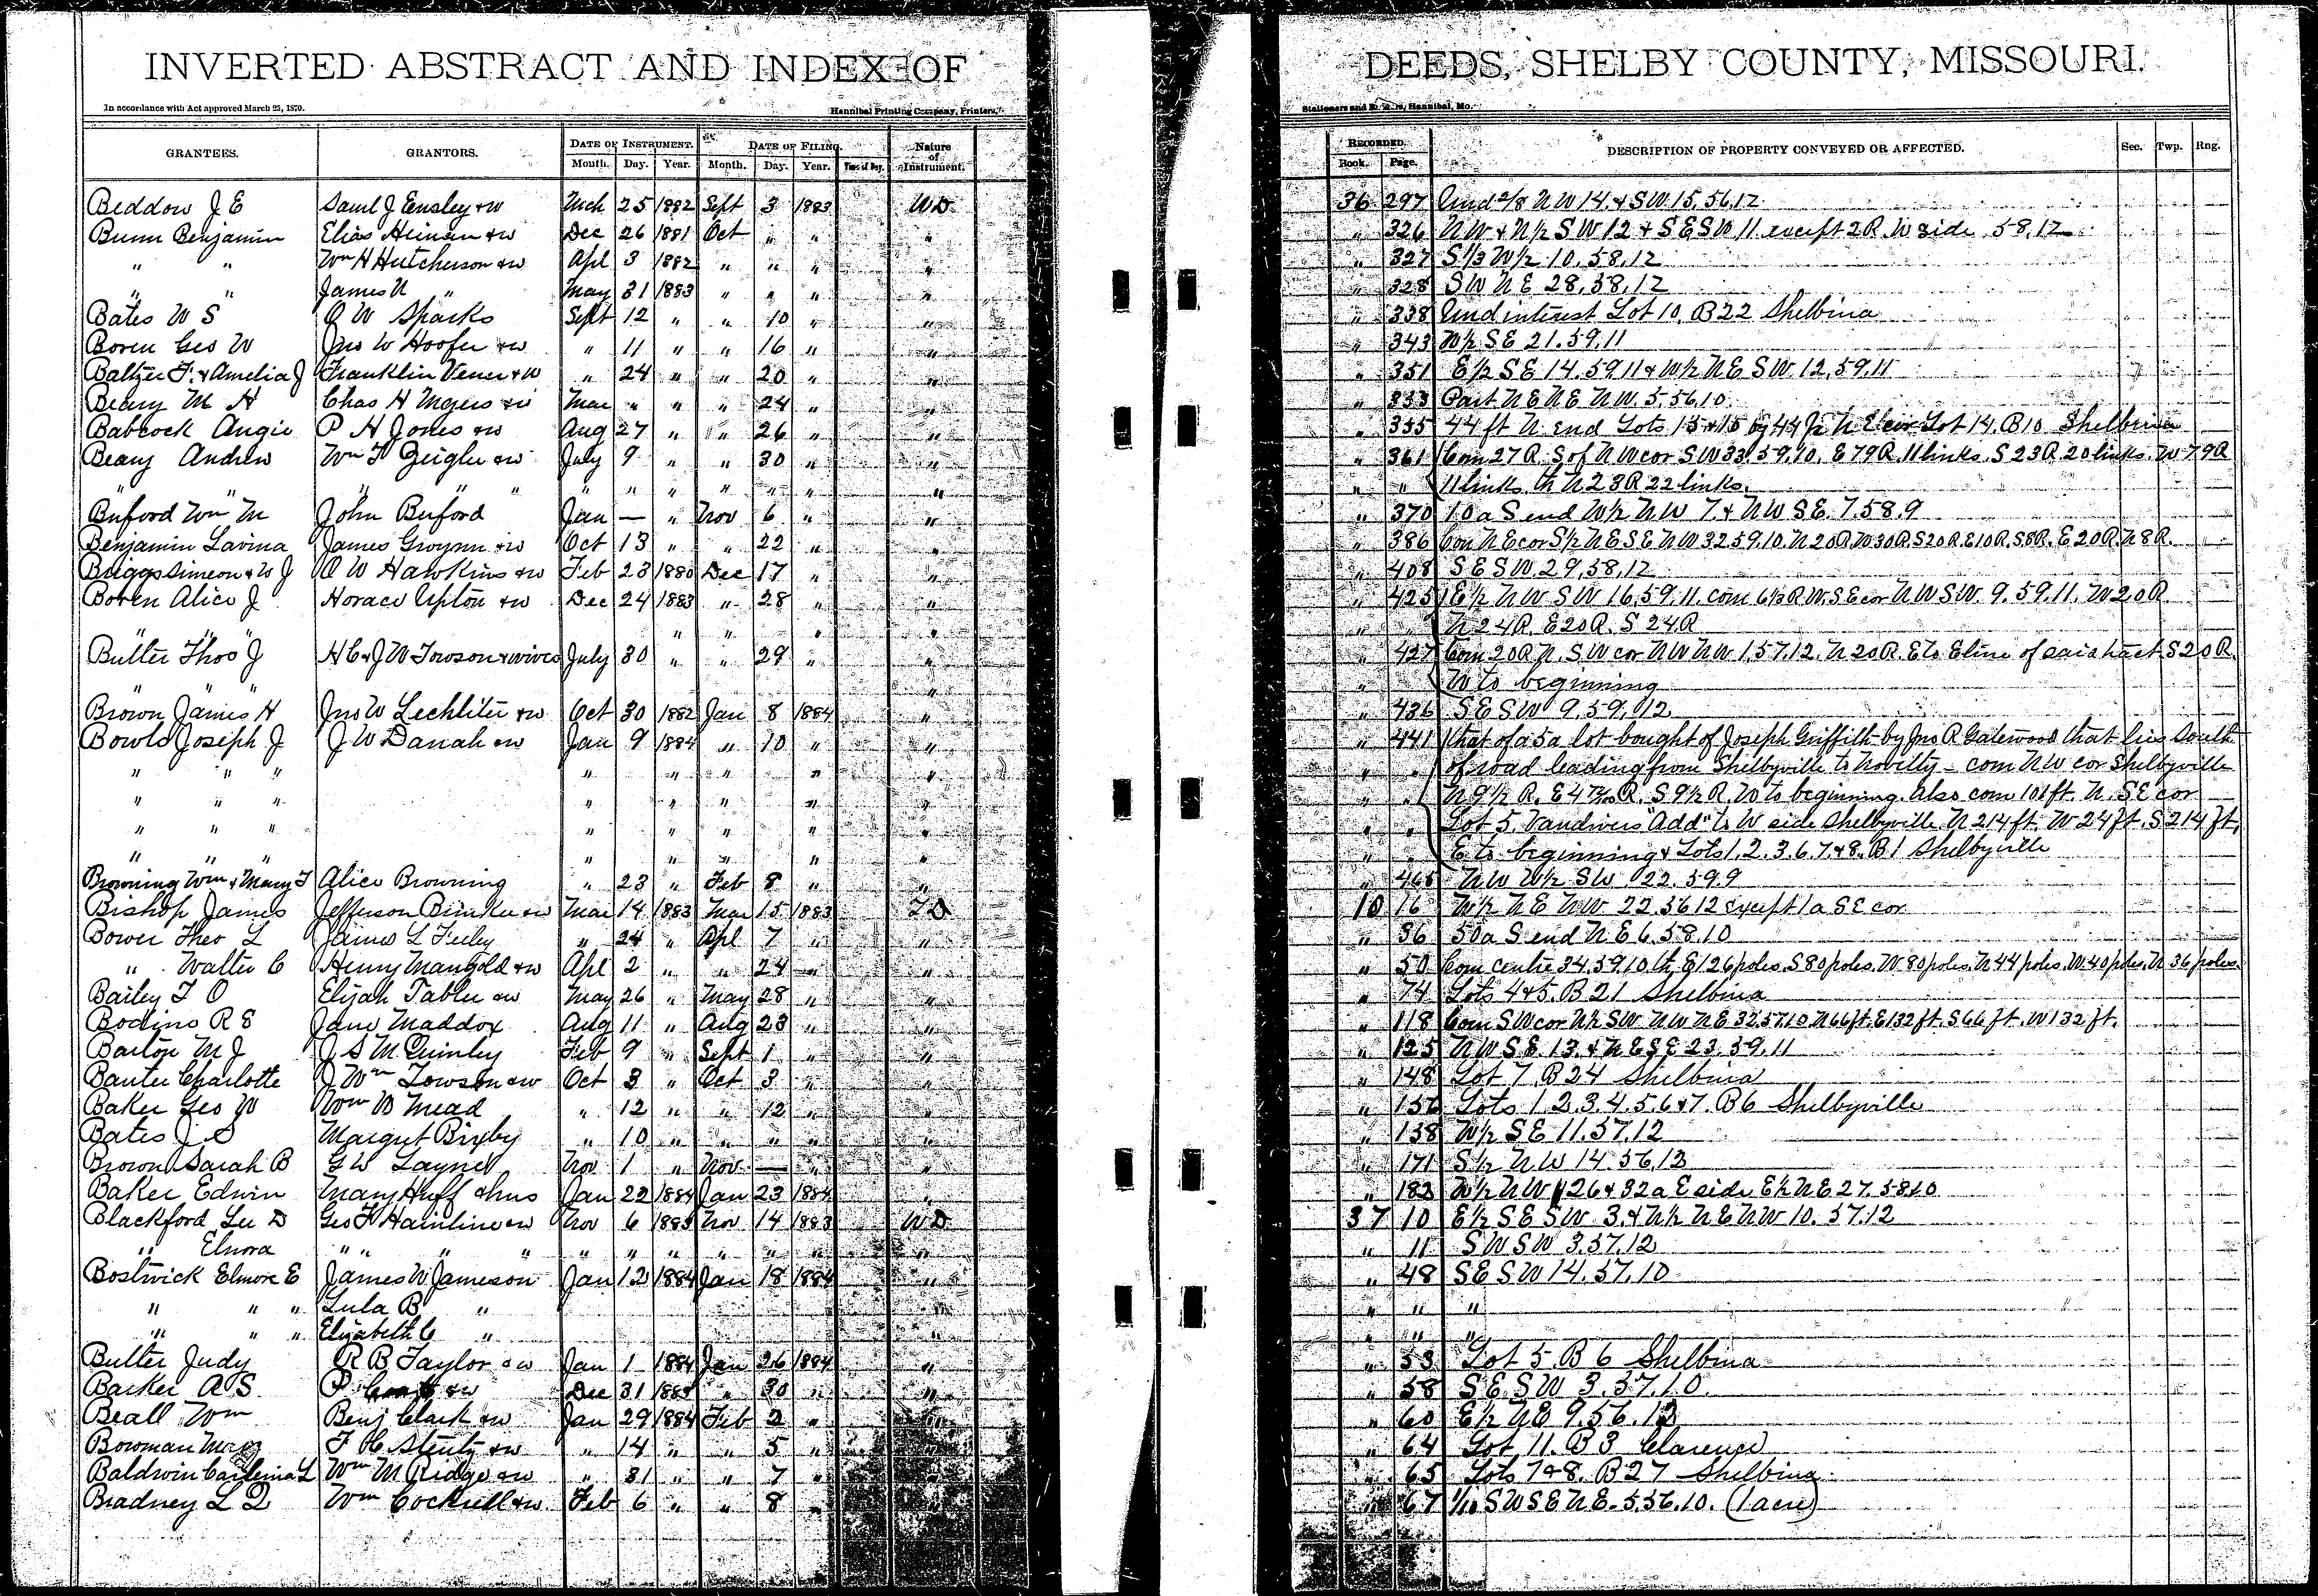 INVERTED ABSTRACT AND INDEX OF DEEDS, SHELBY COUNTY, MISSOURI.
In accordance with Act approved March 25, 1870. Hannibal Printing Company, Printers, Stationers and Hannibal, Mo.
GRANTEES. GRANTORS. DATE OF INSTRUMENT. Month. Day. Year. DATE OF FILING. Month. Day. Year. Nature of Instrument. RECORDED. Book. Page. DESCRIPTION OF PROPERTY CONVEYED OR AFFECTED. Sec. Twp. Rng.
Beddow J E Saml J Ensley & w Mch 25 1882 Sept 3 1883 WD 36 297 Und 2/8 NW 14. & SW 15, 56, 12
Bunn Benjamin Elias Heinan & w Dec 26 1881 Oct " " " " 326 NW & N½ SW 12 & SESW 11 except 2R. W side 58, 12
" " Wm H Hutcherson & w Apl 3 1882 " " " " " 327 S⅓ W½ 10, 58, 12
" " James N " May 31 1883 " " " " " 328 SW NE 28, 58, 12
Bates W S O W Sparks Sept 12 " " 10 " " " 338 Und interest Lot 10, B 22 Shelbina
Boren Geo W Jno W Hoofer & w " 11 " " 16 " " " 343 W½ SE 21. 59, 11
Baltzer F. & Amelia J Franklin Vener & w " 24 " " 20 " " " 351 E½ SE 14. 59, 11 & W½ NE SW 12, 59, 11
Beary M H Chas H Myers & w Mar " " " 24 " " " 353 Part NE NE NW. 5 56, 10
Babcock Angie P H Jones & w Aug 27 " " 26 " " " 355 44 ft N. end Lots 13 & 15 by 44 ft N E cor Lot 14, B 10 Shelbina
Beary Andrew Wm F Zeigler & w July 9 " " 30 " " " 361 Com 27 R. S of NW cor SW 33, 59, 10, E 79 R. 11 links. S 23 R 20 links. W 79 R
" " " " " " " " " " " " " " 11 links. th N 23 R 22 links.
Buford Wm M John Buford Jan — " Nov 6 " " " 370 10 a S end W½ NW 7. & NW SE. 7. 58. 9
Benjamin Lavina James Gwynn & w Oct 13 " " 22 " " " 386 Com NE cor S½ NE SE NW 32 59. 10. N 20 R. W 30 R. S 20 R. E 10 R. S 8 R. E 20 R. N 8 R.
Briggs Simeon & W J O W Hawkins & w Feb 23 1880 Dec 17 " " " 408 SE SW. 29, 58, 12
Boren Alice J Horace Upton & w Dec 24 1883 " 28 " " " 425 E½ NW SW 16, 59, 11. com 6½ R W. SE cor NW SW. 9. 59. 11. W 20 R
" " " " " " " " " N 24 R. E 20 R. S 24 R
Butler Thos J H C & J W Towson & wives July 30 " " 29 " " " 427 Com 20 R N. SW cor NW NW 1, 57, 12. N 20 R. E to E line of said tract S 20 R.
" " " " " W to beginning
Brown James H Jno W Lechliter & w Oct 30 1882 Jan 8 1884 " " 436 SE SW 9. 59, 12
Bowls Joseph J J W Danah & w Jan 9 1884 " 10 " " " 441 that of a 5 a lot bought of Joseph Griffith by Jno R Gatewood that lies South
" " " " " " " " " of road leading from Shelbyville to Novelty - com NW cor Shelbyville
" " " " " " " " " N 9½ R. E 4 R. S 9½ R. W to beginning. Also com 101 ft. N. SE cor
" " " " " " " " " Lot 5 Vandivers Add to W side Shelbyville N 214 ft. W 24 ft. S 214 ft,
" " " " " " " " E to beginning & Lots 1, 2. 3. 6. 7 & 8. B 1 Shelbyville
Browning Wm & Mary F Alice Browning " 23 " Feb 8 " " " 465 NW W½ SW 22. 59. 9
Bishop James Jefferson & w Mar 14 1883 Mar 15 1883 TD 10 16 W½ NE NW 22 56 12 except 1 a SE cor
Bower Theo L James L Feeley " 24 " Apl 7 " " " 36 50 a S end NE 6. 58, 10
" Walter C Henry Mangold & w Apl 2 " " 24 " " " 50 Com centre 34, 59, 10 th E 126 poles. S 80 poles. W 80 poles. N 44 poles. W 40 poles. N 36 poles.
Bailey T O Elijah Tabler & w May 26 " May 28 " " " 74 Lots 4 & 5. B 21 Shelbina
Bodine R S Jane Maddox Aug 11 " Aug 23 " " " 118 Com SW cor N½ SW NW NE 32, 57, 10 N 66 ft. E 132 ft. S 66 ft. W 132 ft.
Barton M J J S M Quinley Feb 9 " Sept 1 " " " 125 NW SE 13. & NE SE 23. 59, 11
Banter Charlotte J Wm Towson & w Oct 3 " Oct 3 " " " 148 Lot 7 B 24 Shelbina
Baker Geo W Wm B Mead " 12 " " 12 " " " 156 Lots 1 2. 3. 4. 5. 6 & 7. B 6 Shelbyville
Bates J S Margret Bixby " 10 " " " " " " 158 W½ SE 11. 57, 12
Brown Sarah B G W Layne Nov 1 " Nov — " " " 171 S½ NW 14 56, 12
Baker Edwin Mary Huff & hus Jan 22 1884 Jan 23 1884 " " 182 W½ NW 26 & 32 a E side E½ NE 27. 58 10
Blackford Lee D Geo F Hainline & w Nov 6 1883 Nov 14 1883 WD 37 10 E½ SE SW 3. & N½ NE NW 10. 57. 12
" Elnora " " " " " " " " " " " " 11 SW SW 3. 57, 12
Bostwick Elmore E James W Jameson Jan 12 1884 Jan 18 1884 " " 48 SE SW 14. 57, 10
" " " Lula B " " " " "
" " " Elizabeth C " " " " "
Butler Judy R B Taylor & w Jan 1 1884 Jan 26 1884 " " 53 Lot 5. B 6 Shelbina
Barker A S. P & w Dec 31 1883 " 30 " " " 58 SE SW 3. 57, 10
Beall Wm Benj Clark & w Jan 29 1884 Feb 2 " " " 60 E½ NE 9. 56. 12
Bowman F H Stentz & w " 14 " " 5 " " " 64 Lot 11. B 3 Clarence
Baldwin L Wm M Ridge & w " 31 " " 7 " " " 65 Lots 7 & 8. B 27 Shelbina
Bradney L D Wm Cockrell & w Feb 6 " " 8 " " " 67 1/10 SW SE NE. 5. 56. 10. (1 acre)